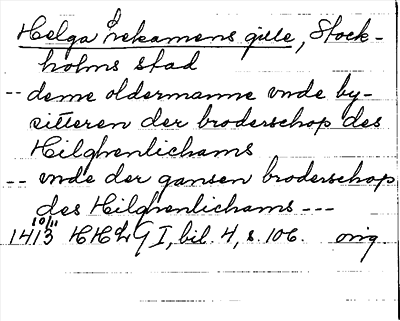 Helga Lekamens gille, Stock-
holms stad
-- deme oldermanne vnde by-
sitteren der broderschop des
Hilghenlichams
-- vnde der gansen broderschop
des Hilghenlichams ---
10/11
1413 HHLG I, bil. 4, s. 106. orig.